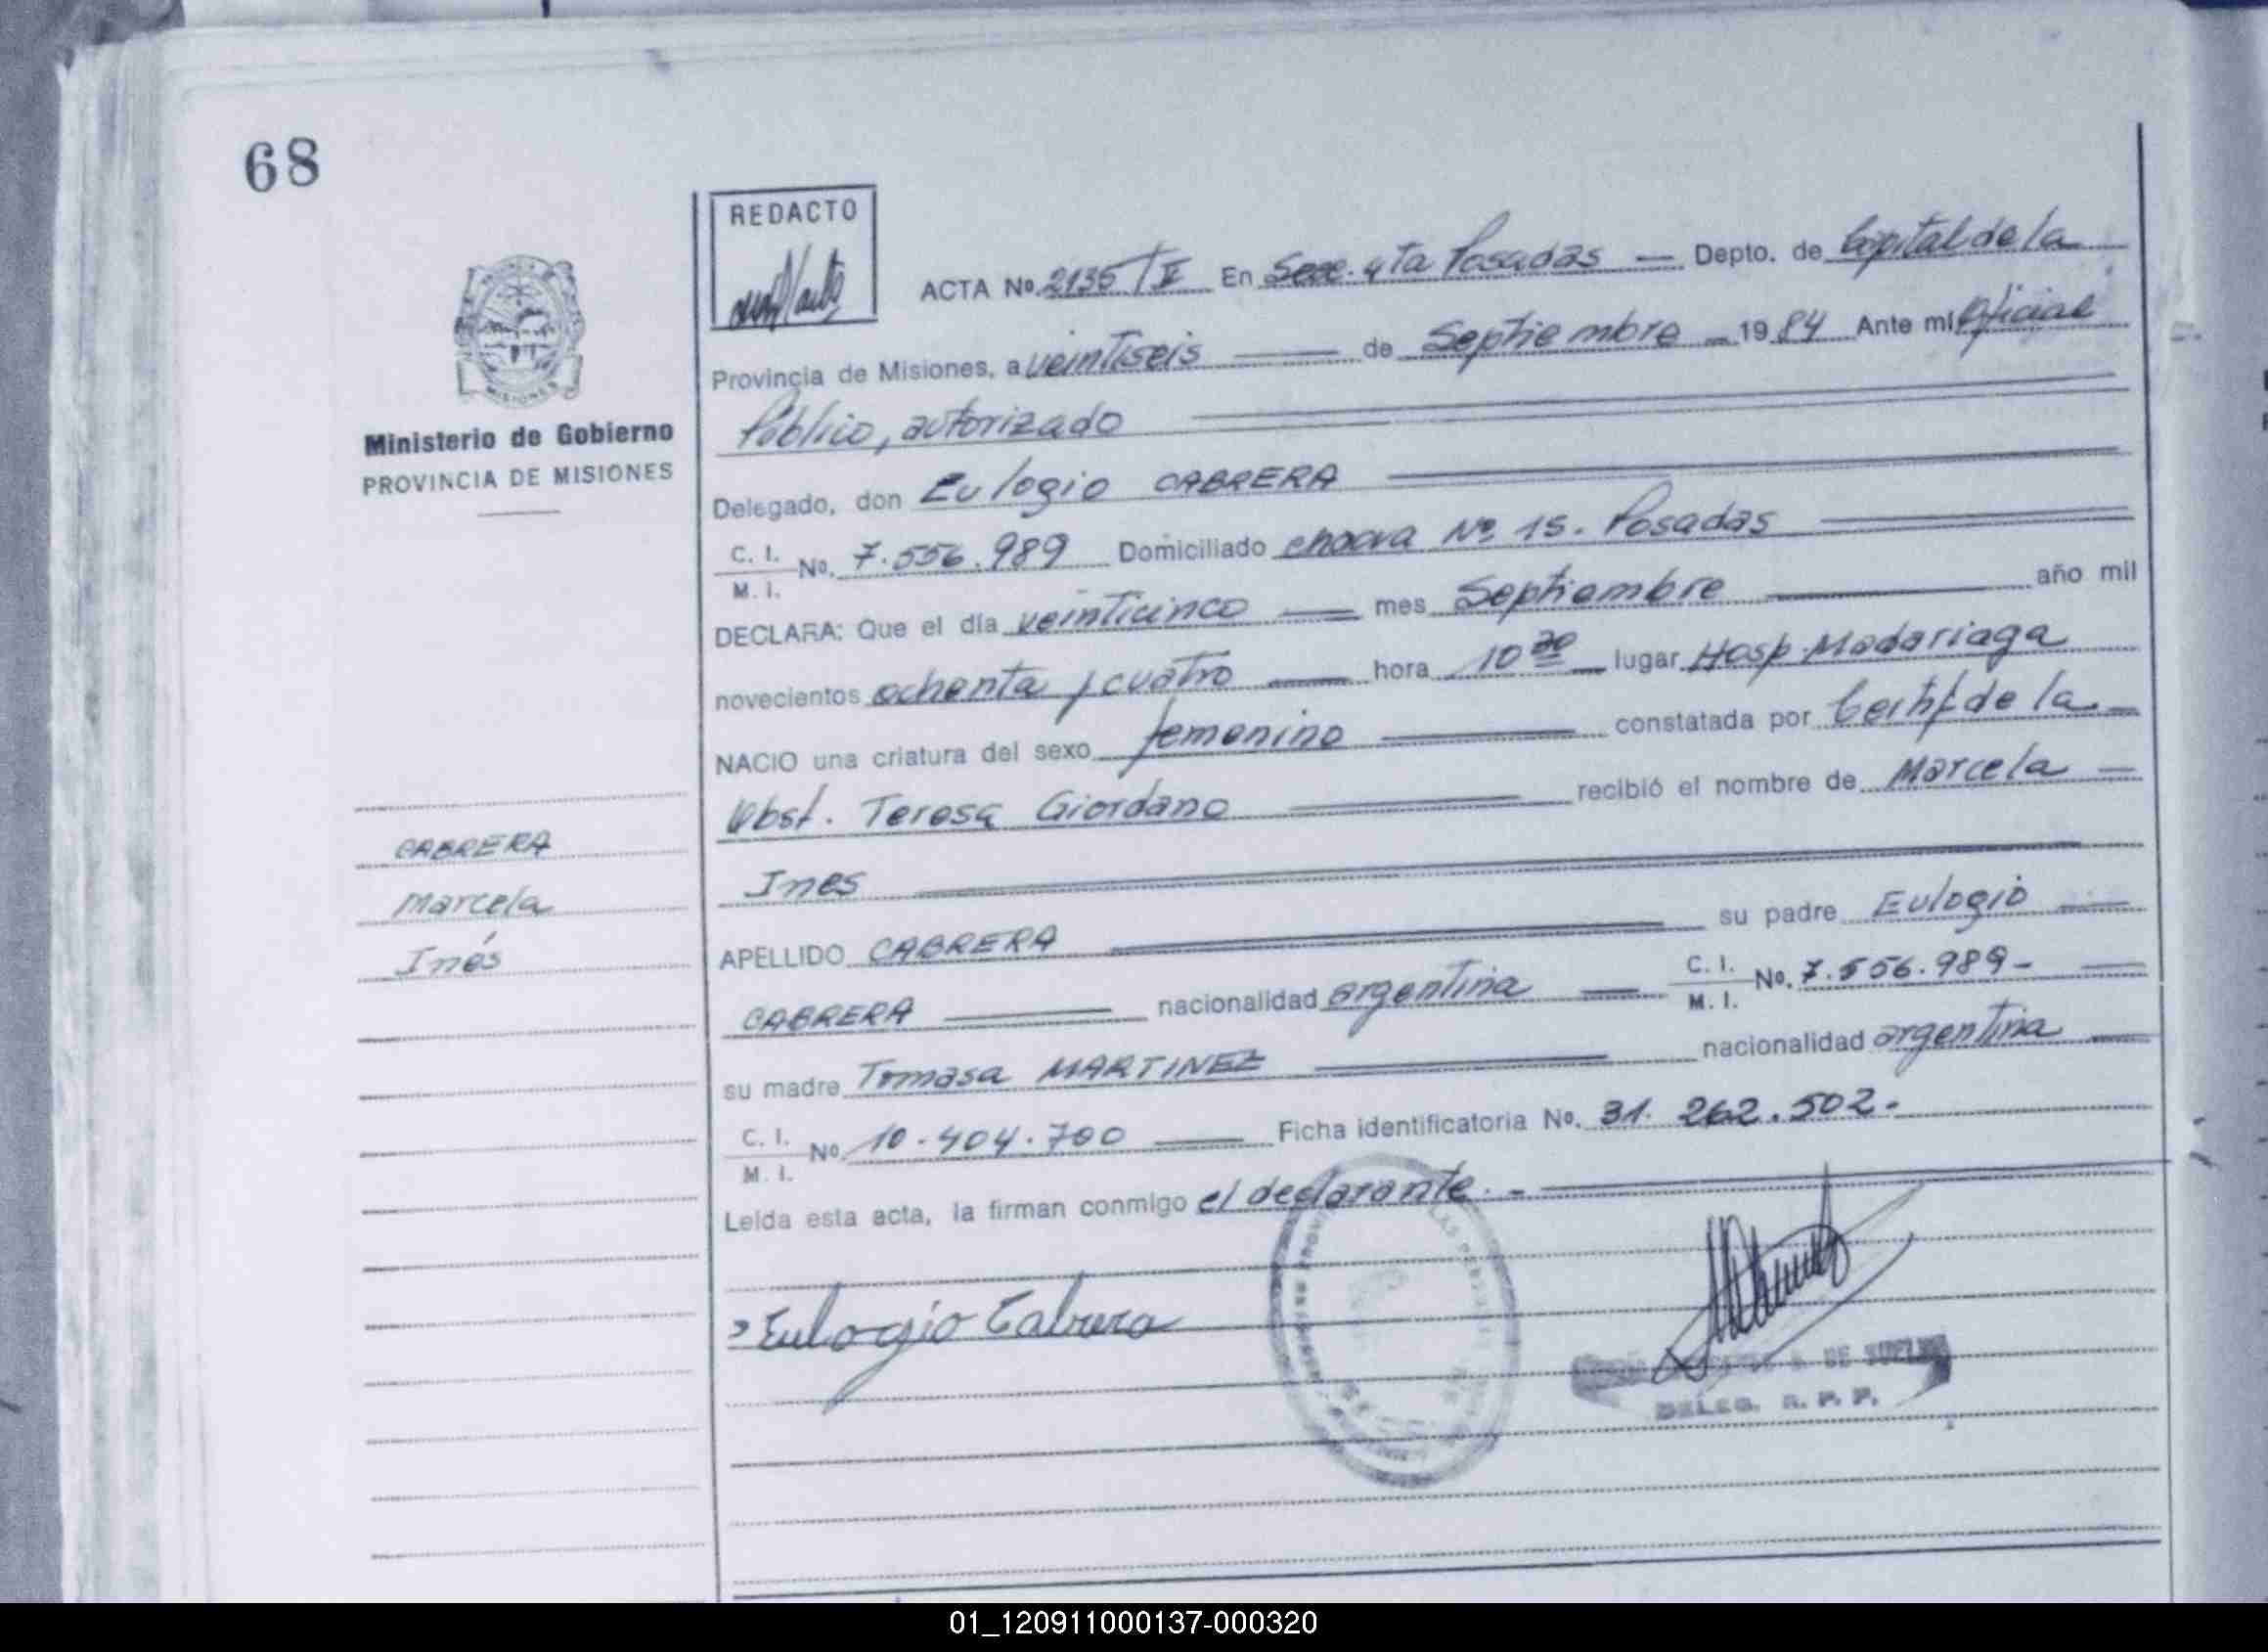 68
REDACTO
ACTA No. 2135/V En Secc. 4ta Posadas — Depto. de Capital de la
Provincia de Misiones, a veintiseis — de Septiembre — 1984 Ante mí Oficial
Público, autorizado
MISIONES
Ministerio de Gobierno
PROVINCIA DE MISIONES
Delegado, don Eulogio CABRERA
C. I.
M. I. No. 7.556.989 Domiciliado chacra Nº 15. Posadas
DECLARA: Que el día veinticinco — mes Septiembre — año mil
novecientos ochenta y cuatro — hora 10 30 — lugar Hosp. Madariaga
NACIO una criatura del sexo femenino — constatada por Certif de la —
Obst. Teresa Giordano — recibió el nombre de Marcela —
Ines
APELLIDO CABRERA — su padre Eulogio —
CABRERA — nacionalidad argentina — C. I.
M. I. No. 7.556.989 -
su madre Tomasa MARTINEZ — nacionalidad argentina —
C. I.
M. I. No. 10.404.700 — Ficha identificatoria No. 31.262.502.-
Leída esta acta, la firman conmigo el declarante. -
CABRERA
Marcela
Inés
Eulogio Cabrera
DELEG. R. P. P.
01_120911000137-000320